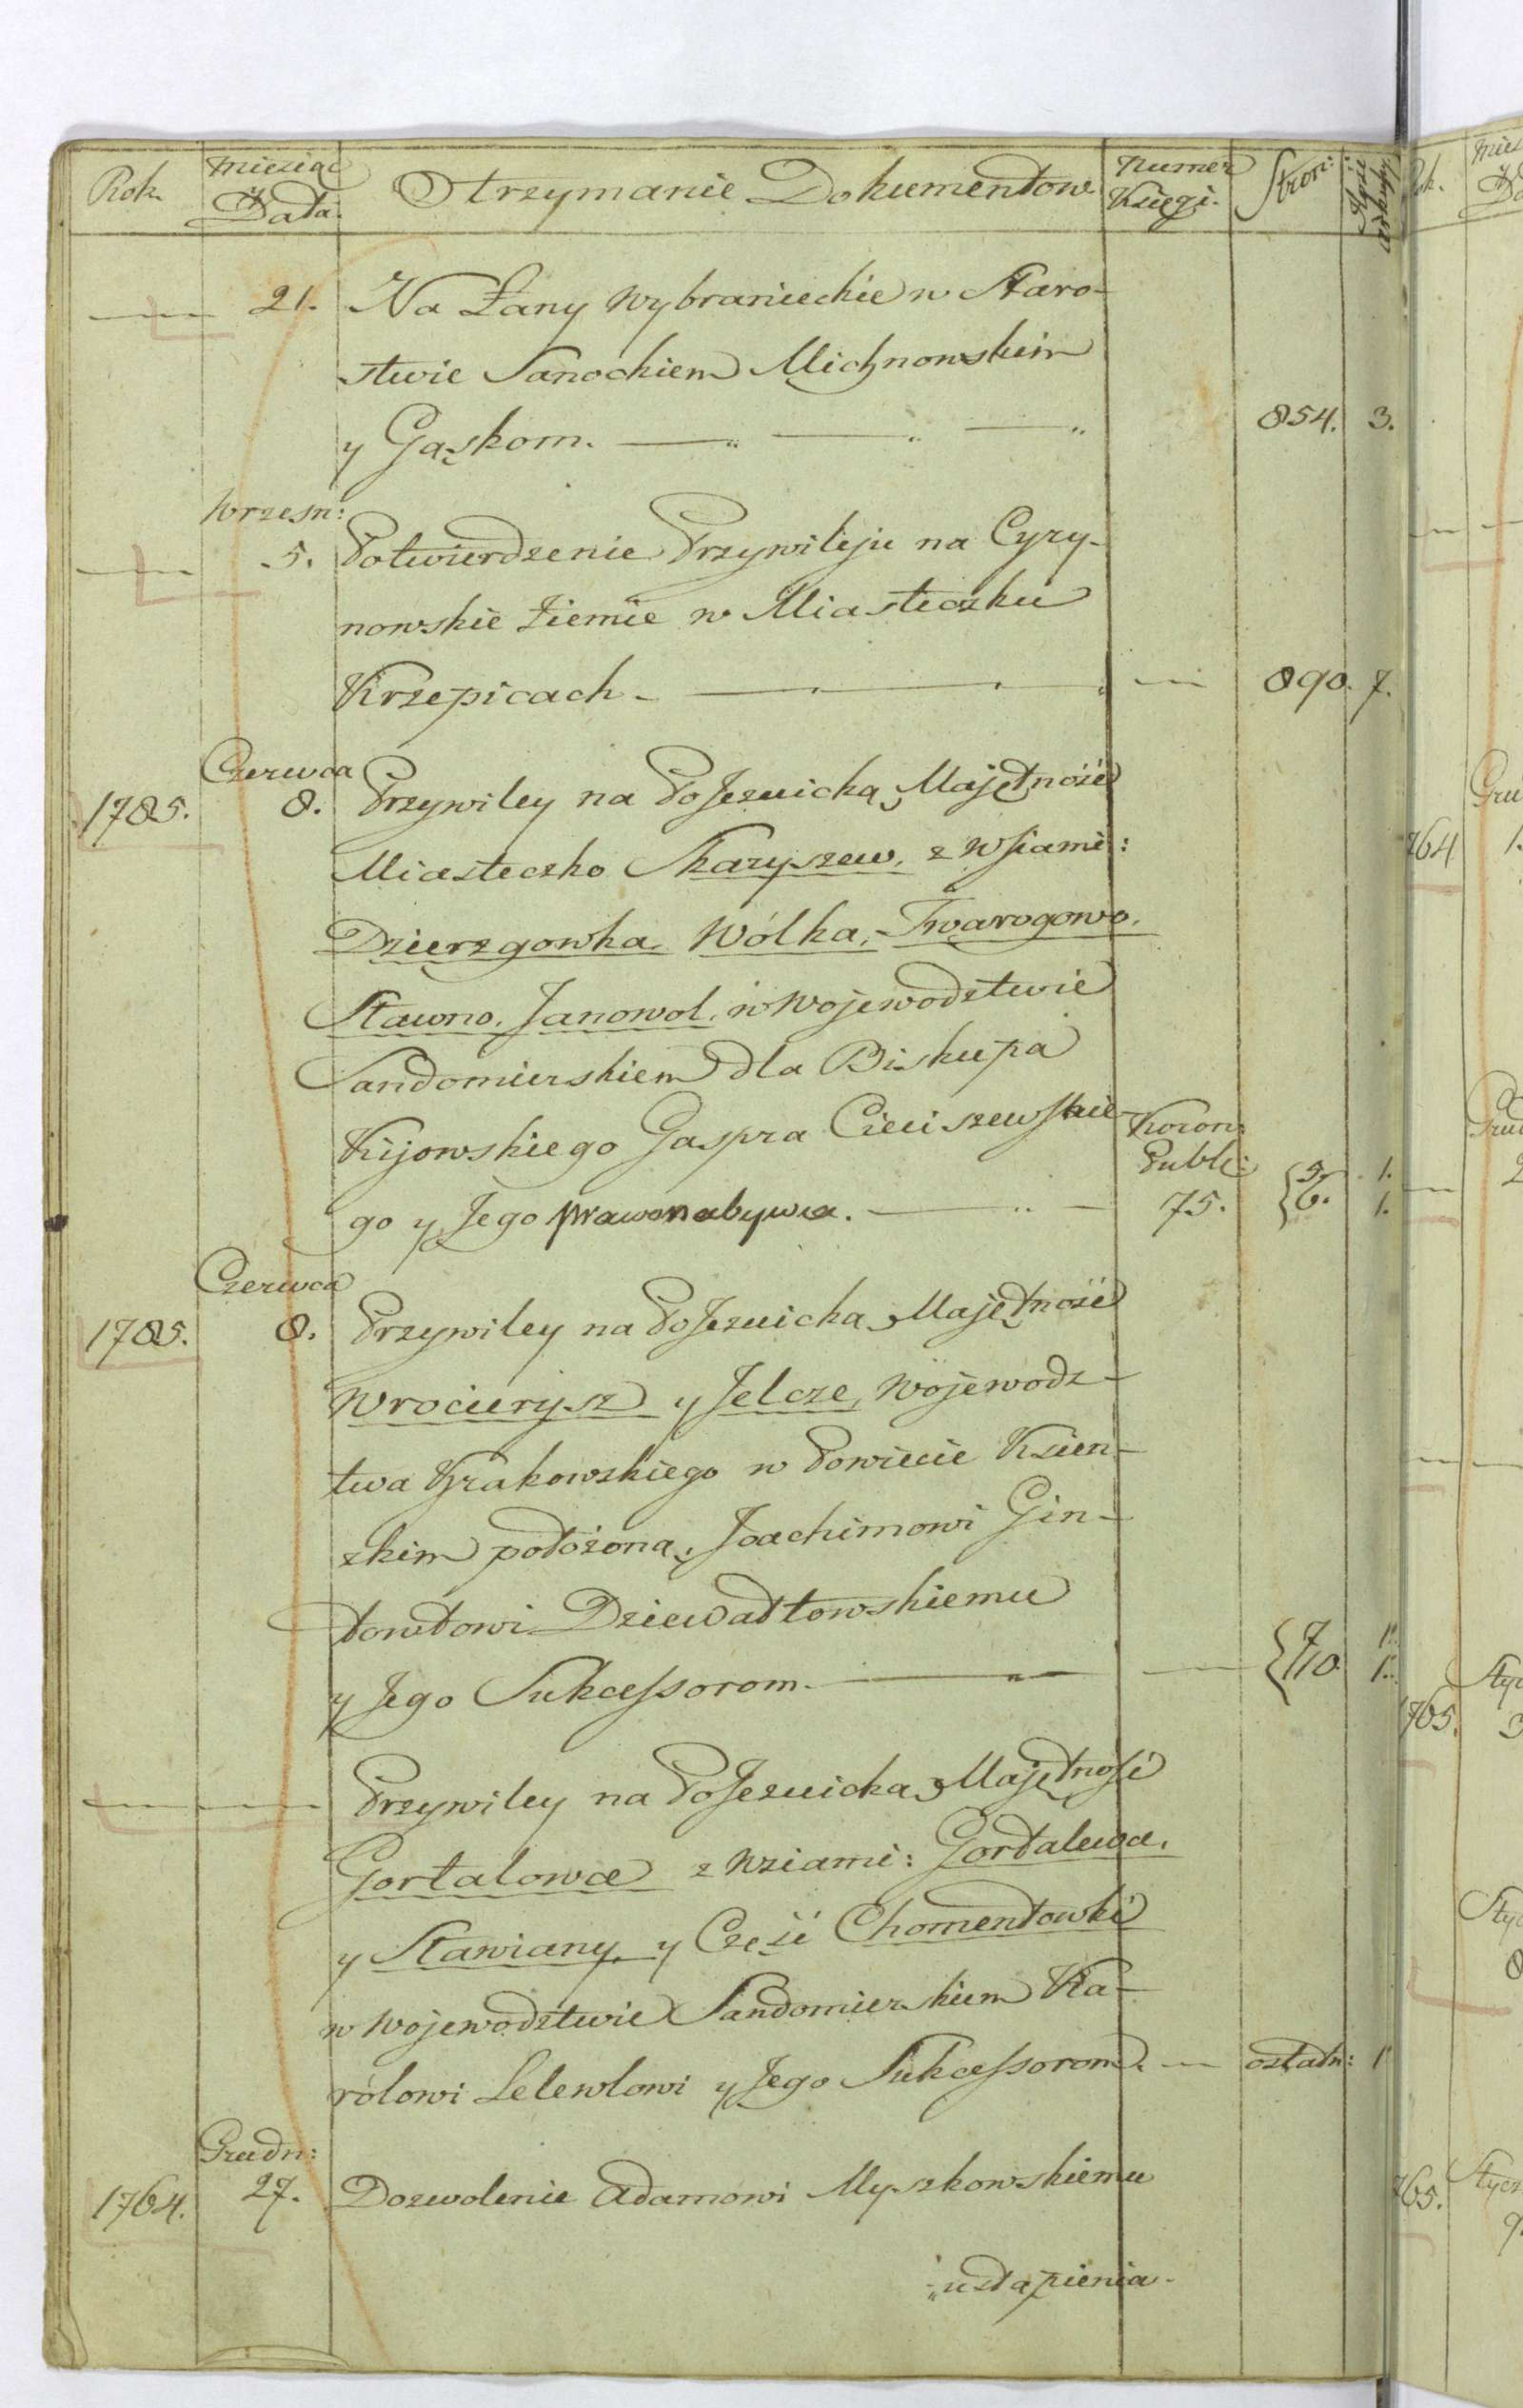 Rok. Miesiąc Data. Otrzymanie Dokumentow Numer Księgi. Stron:
21. Na Łany Wybranieckie w Staro-
stwie Sanockiem Michnowskim
y Gąskom. 854. 3.
Wrzesn:
5. Potwierdzenie Przywileju na Cyry-
nowskie Ziemie w Miasteczku
Krzepicach. 890. 7.
Czerwca
1785. 8. Przywiley na PoJezuicką Majętność
Miasteczko Skaryszew, z Wsiami:
Dzierzgowka, Wólka, Twarogowo.
Sławno. Janowol. w Wojewodztwie
Sandomierskiem dla Biskupa
Kijowskiego Gaspra Cieciszewskie- Koron:
Publ:
go y Jego prawonabywca. 75. { 5. 6. 1. 1.
Czerwca
1785. 8. Przywiley na PoJezuicką Majętność
Wrocierysz y Jelcze, Wojewodz-
twa Krakowskiego w Powiecie Ksien-
zkim położoną, Joachimowi Gin-
towtowi Dziewałtowskiemu
y Jego Sukcessorom. { 7 10 1. 1.
Przywiley na PoJezuicką Majętność
Gortatowce z Wsiami: Gortatowce.
y Sławiany, y Część Chomentowki
w Wojewodztwie Sandomierskiem Ka-
rólowi Lelewlowi y Jego Sukcessorom. ostatn: 1
Grudn:
1764. 27. Dozwolenie Adamowi Myszkowskiemu
ustąpienia.